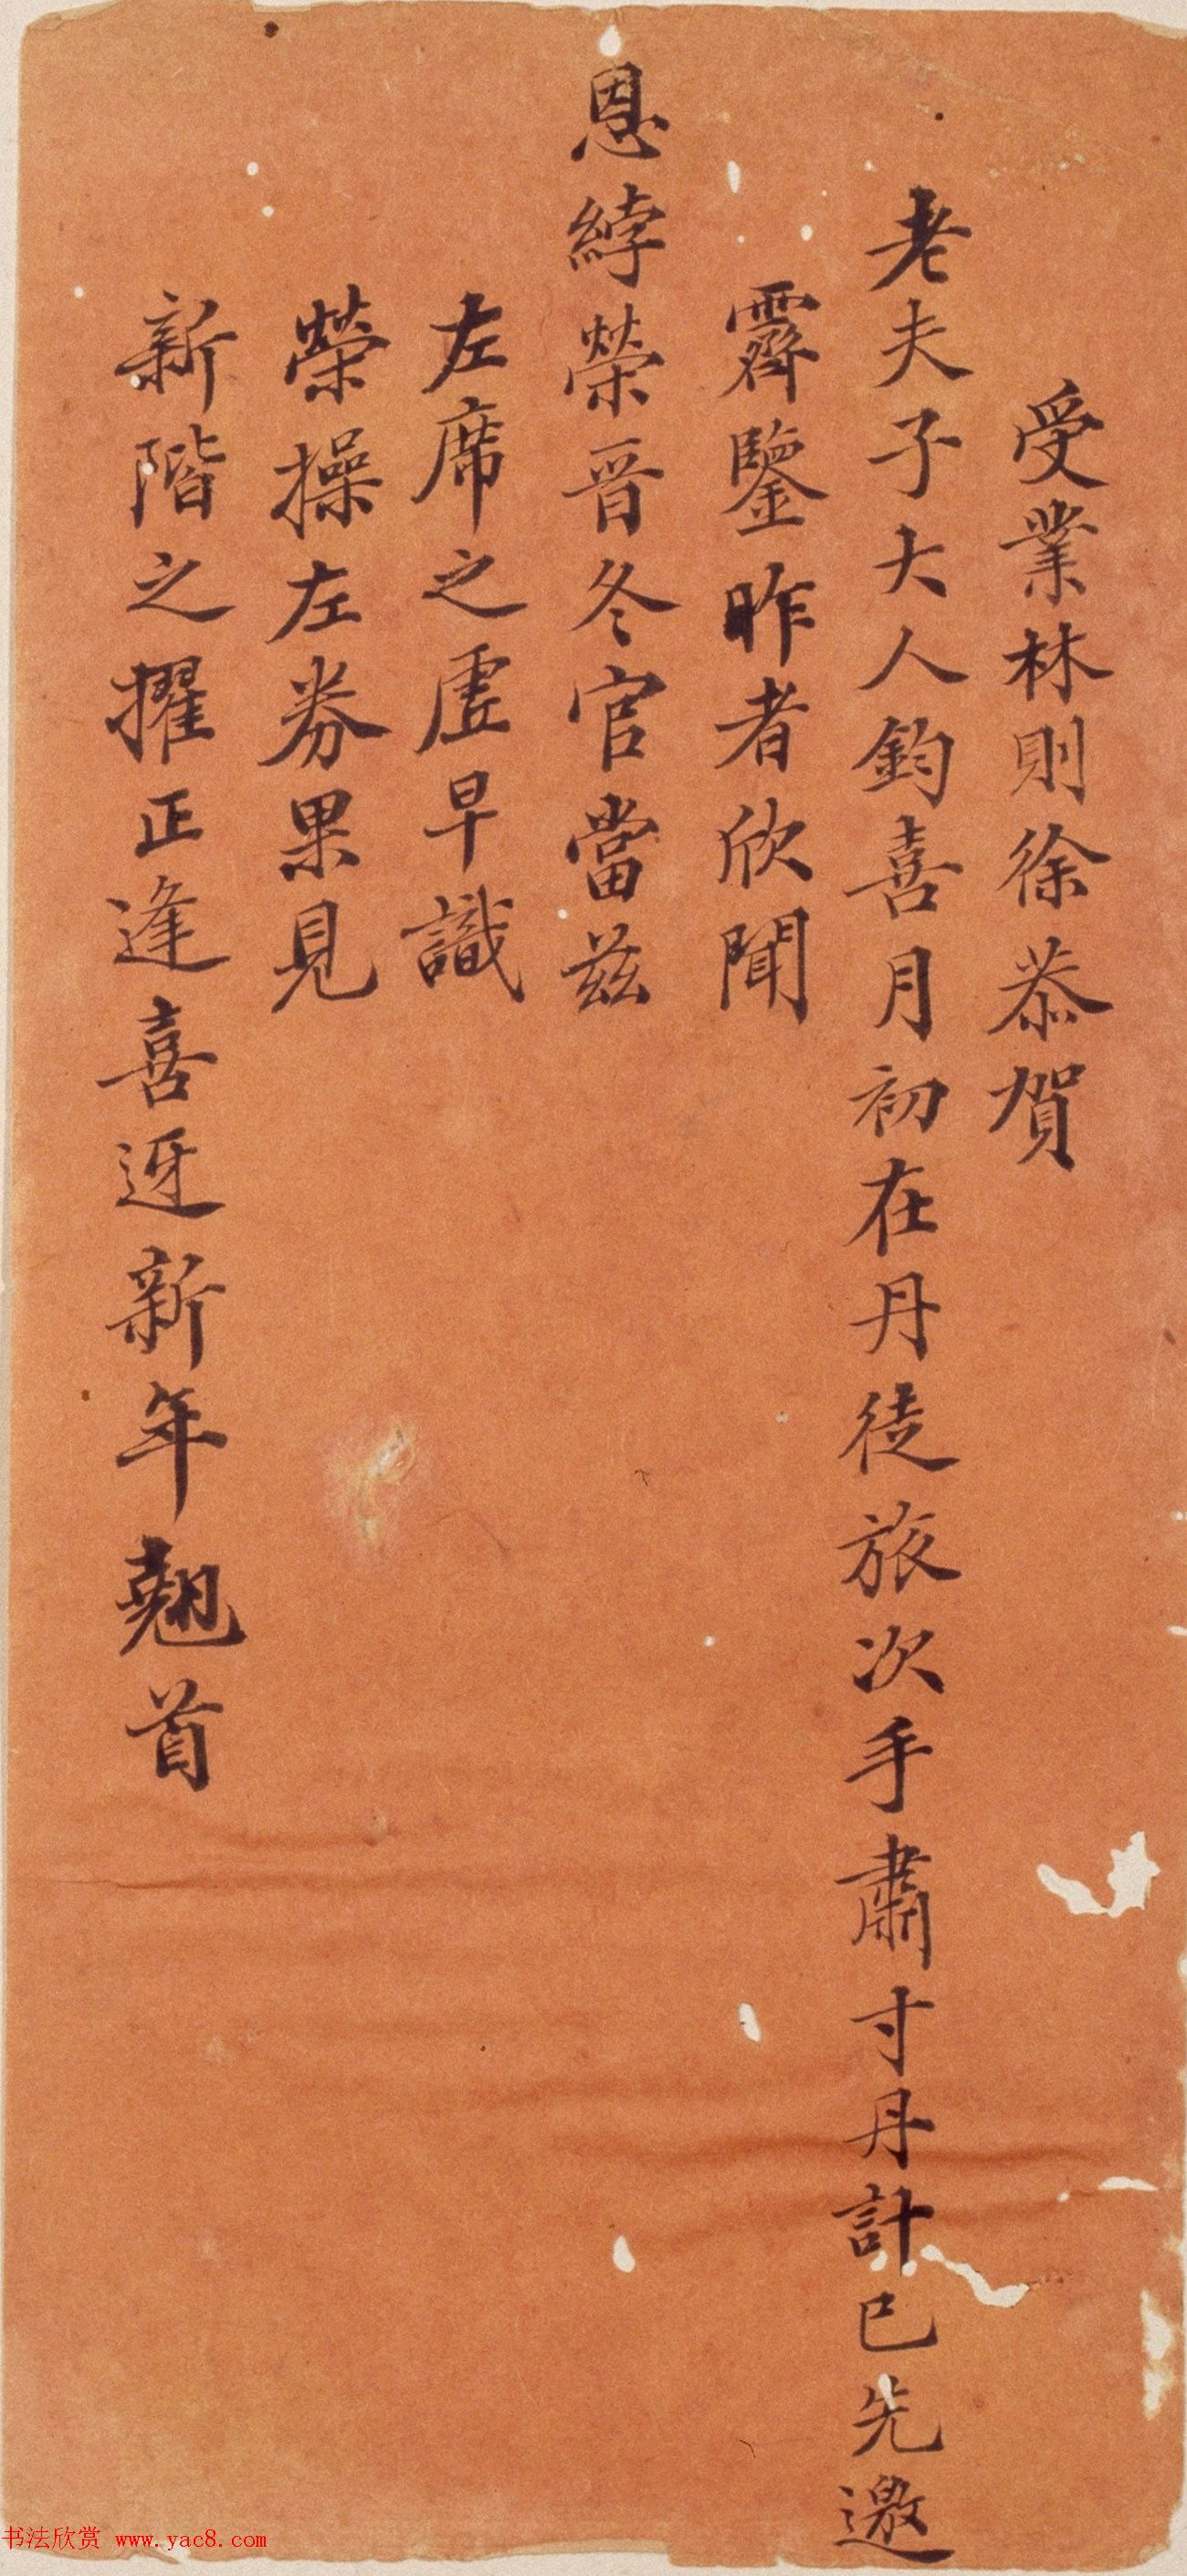 受業林則徐恭賀
老夫子大人鈞喜月初在丹徒旅次手肅寸丹計已先邀
霽鑒昨者欣聞
恩綍榮晉冬官當茲
左席之虛早識
榮操左券果見
新階之擢正逢喜迓新年翹首
书法欣赏 www.yac8.com